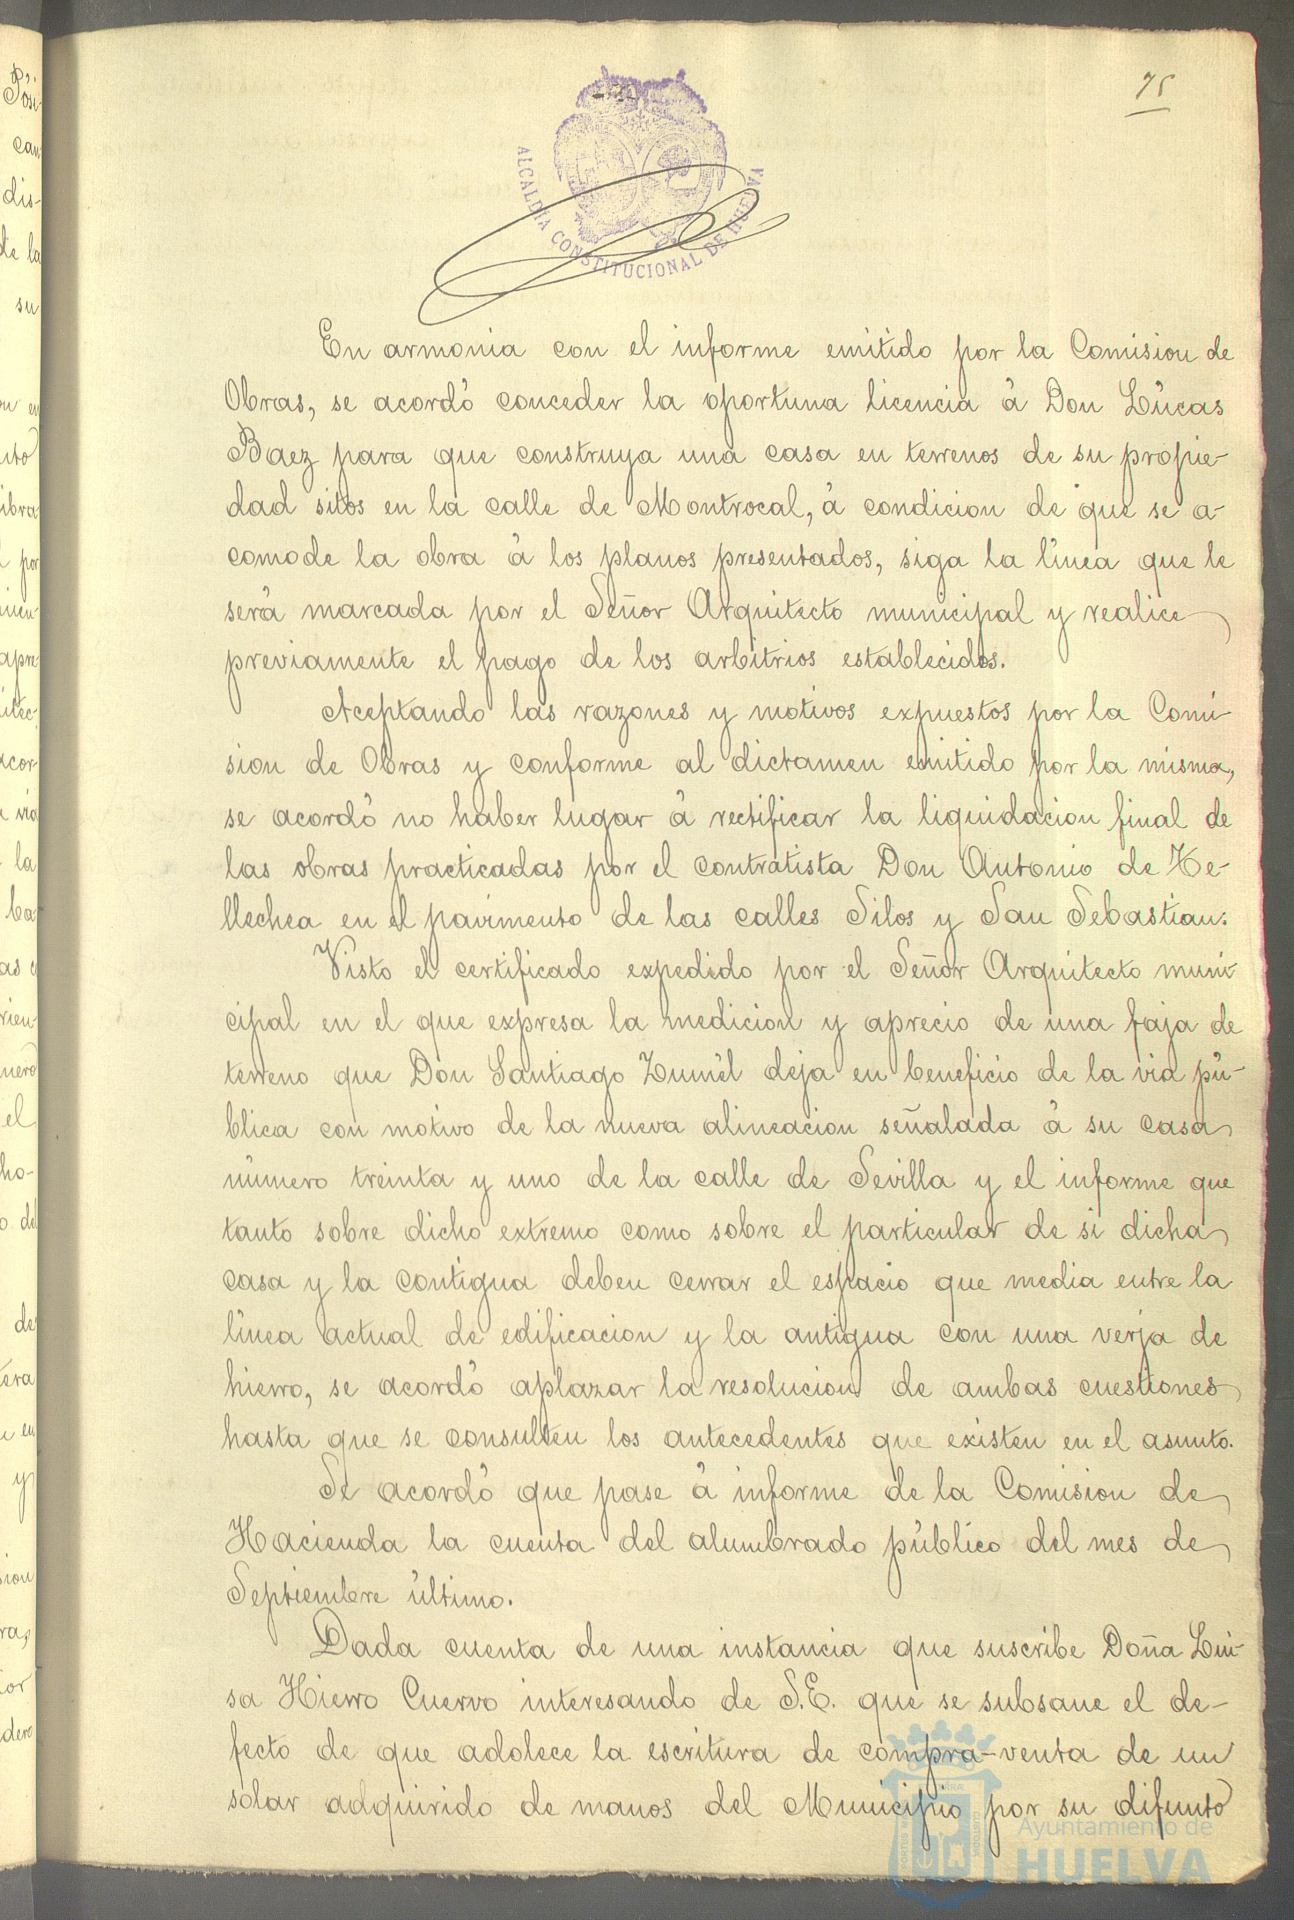 75
ALCALDÍA CONSTITUCIONAL DE HUELVA
En armonia con el informe emitido por la Comision de
Obras, se acordó conceder la oportuna licencia á Don Lúcas
Baez para que construya una casa en terrenos de su propie-
dad sitos en la calle de Montrocal, á condicion de que se a-
comode la obra á los planos presentados, siga la línea que le
será marcada por el Señor Arquitecto municipal y realice
previamente el pago de los arbitrios establecidos.
Aceptando las razones y motivos expuestos por la Comi-
sion de Obras y conforme al dictamen emitido por la misma,
se acordó no haber lugar á rectificar la liquidacion final de
las obras practicadas por el contratista Don Antonio de He-
llechea en el pavimento de las calles Silos y San Sebastian.
Visto el certificado expedido por el Señor Arquitecto muni-
cipal en el que expresa la medicion y aprecio de una faja de
terreno que Don Santiago Zumél deja en beneficio de la via pú-
blica con motivo de la nueva alineacion señalada á su casa
número treinta y uno de la calle de Sevilla y el informe que
tanto sobre dicho extremo como sobre el particular de si dicha
casa y la contigua deben cerrar el espacio que media entre la
línea actual de edificacion y la antigua con una verja de
hierro, se acordó aplazar la resolucion de ambas cuestiones
hasta que se consulten los antecedentes que existen en el asunto.
Se acordó que pase á informe de la Comision de
Hacienda la cuenta del alumbrado público del mes de
Septiembre último.
Dada cuenta de una instancia que suscribe Doña Lui-
sa Hierro Cuervo interesando de S.E. que se subsane el de-
fecto de que adolece la escritura de compra-venta de un
solar adquirido de manos del Municipio por su difunto
Ayuntamiento de
HUELVA